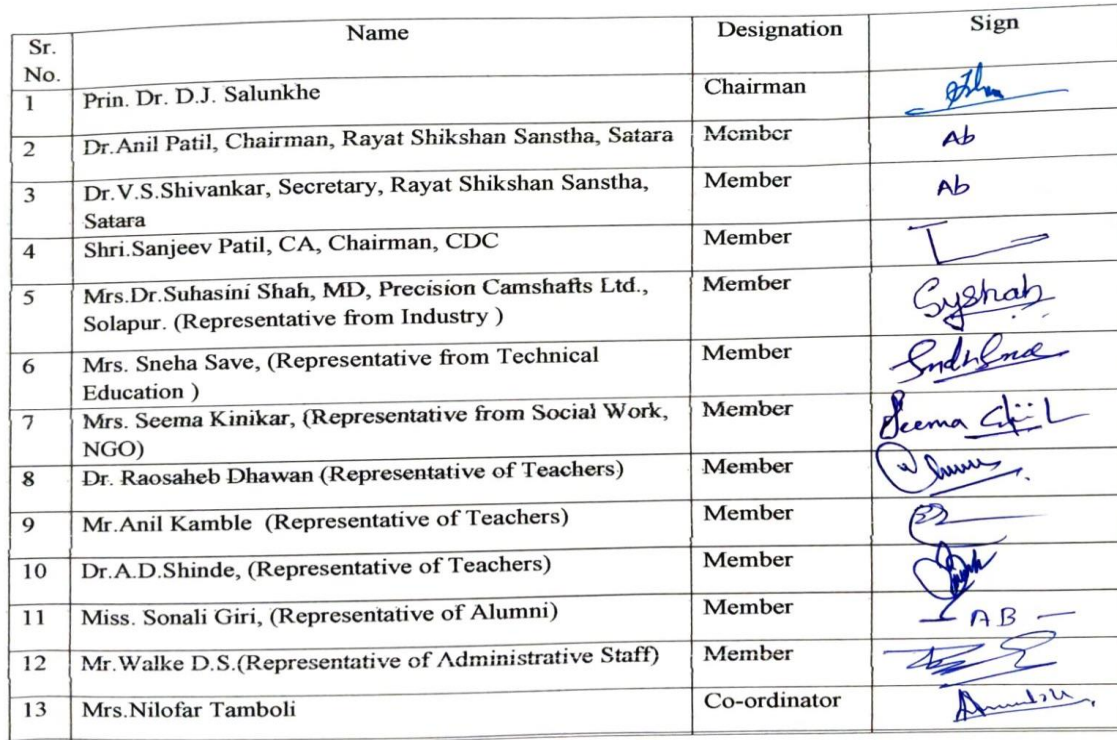 Sr. No. Name Designation Sign
1 Prin. Dr. D.J. Salunkhe Chairman
2 Dr.Anil Patil, Chairman, Rayat Shikshan Sanstha, Satara Member Ab
3 Dr.V.S.Shivankar, Secretary, Rayat Shikshan Sanstha, Member Ab
Satara
4 Shri.Sanjeev Patil, CA, Chairman, CDC Member
5 Mrs.Dr.Suhasini Shah, MD, Precision Camshafts Ltd., Member
Solapur. (Representative from Industry )
6 Mrs. Sneha Save, (Representative from Technical Member
Education )
7 Mrs. Seema Kinikar, (Representative from Social Work, Member Seema
NGO)
8 Dr. Raosaheb Dhawan (Representative of Teachers) Member
9 Mr.Anil Kamble (Representative of Teachers) Member
10 Dr.A.D.Shinde, (Representative of Teachers) Member
11 Miss. Sonali Giri, (Representative of Alumni) Member — AB —
12 Mr.Walke D.S.(Representative of Administrative Staff) Member
13 Mrs.Nilofar Tamboli Co-ordinator